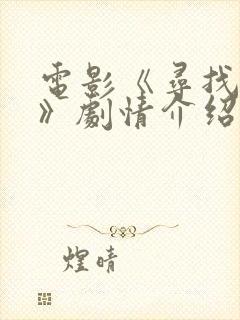 電影《尋找
》劇情介紹
煌晴